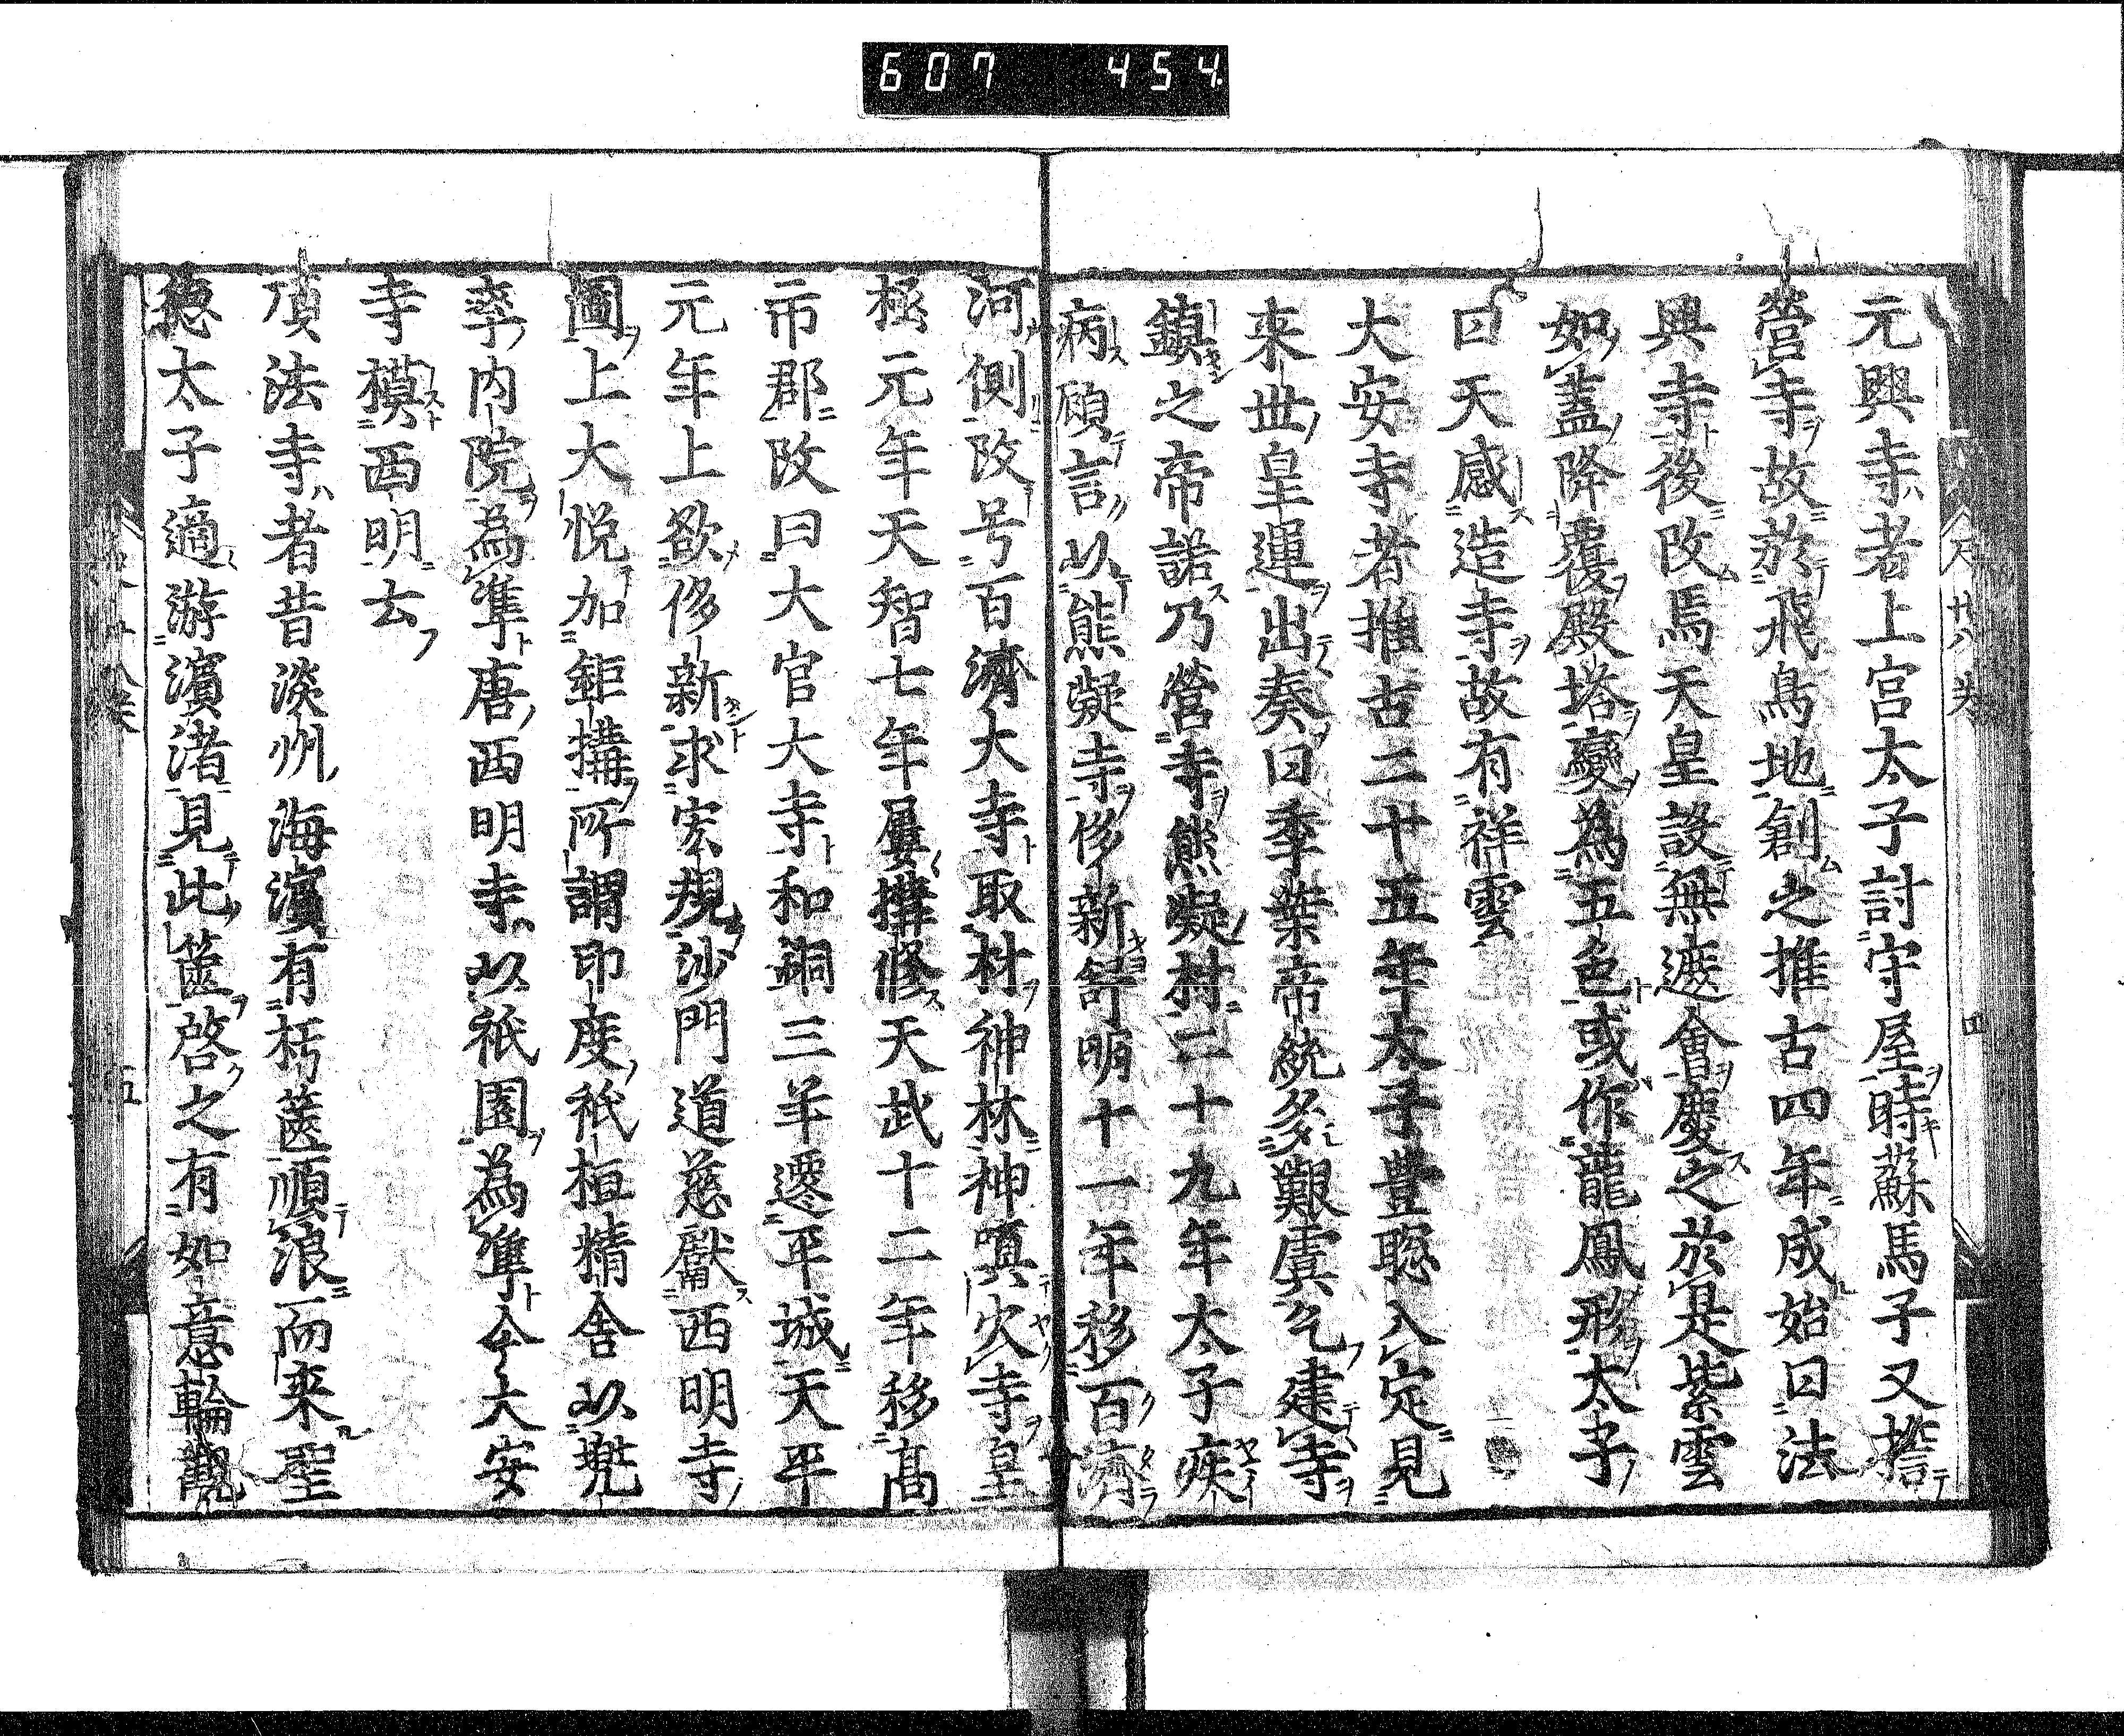 607 454
元興寺者上宮太子討守屋時蘇馬子又誓
營寺故於飛鳥地創之推古四年成始曰法
興寺後改焉天皇設無遮會慶之於是紫雲
如蓋降覆殿塔變為五色或作龍鳳形太子
曰天感造寺故有祥雲
大安寺者推古二十五年太子豊聡入定見
来世皇運出奏曰季葉帝統多艱虞乞建寺
鎮之帝諾乃營寺熊凝村二十九年太子疾
病顧言以熊凝寺修新舒明十一年移百濟
河側改号百濟大寺取材神林神嗔火寺皇
極元年天智七年屢搆修天武十二年移髙
市郡改曰大官大寺和銅三年遷平城天平
元年上欲修新求宏規沙門道慈獻西明寺
圖上大悦加鉅搆所謂印度祇桓精舍以兜
率内院為隼唐西明寺以祇園為隼今大安
寺摸西明云
頂法寺者昔淡州海濱有朽篋順浪而來聖
徳太子適游濱渚見此篋啓之有如意輪觀